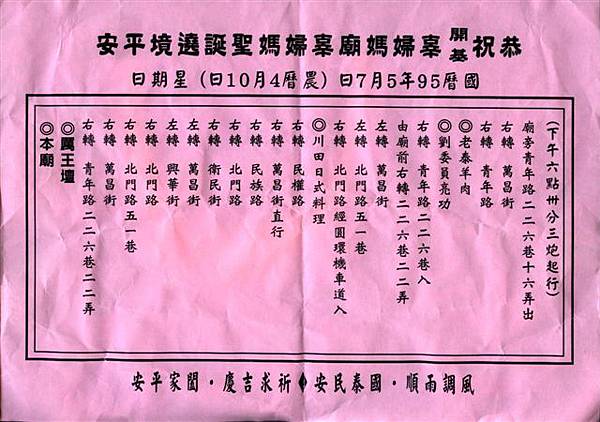 恭祝開基辜婦媽廟辜婦媽聖誕遶境平安
國曆95年5月7日（農曆4月10日）星期日
（下午六點卅分三炮起行）
廟旁青年路二二六巷十六弄出
右轉 萬昌街
右轉 青年路
◎老泰羊肉
◎劉委員亮功
右轉 青年路二二六巷入
由廟前右轉二二六巷二二弄
左轉 萬昌街
左轉 北門路五一巷
右轉 北門路經圓環機車道入
◎川田日式料理
右轉 民權路
右轉 萬昌街直行
右轉 民族路
右轉 北門路
右轉 衛民街
左轉 萬昌街
左轉 興華街
右轉 北門路
右轉 北門路五一巷
右轉 萬昌街
右轉 青年路二二六巷二二弄
◎厲王壇
◎本廟
風調雨順・國泰民安◆祈求吉慶・闔家平安